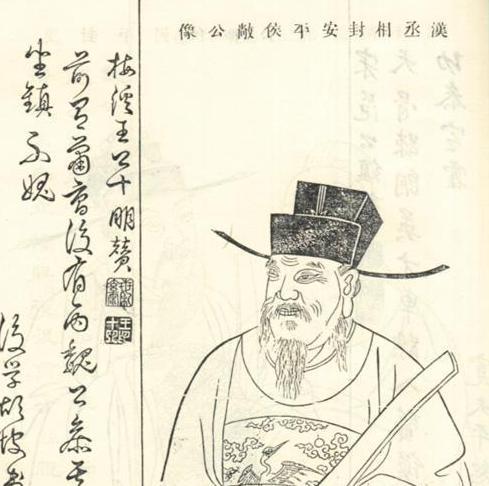 漢丞相封安平侯敞公像
梅溪王公十朋贊
前有蕭曹後有丙魏公叅其
坐鎮不愧
後學